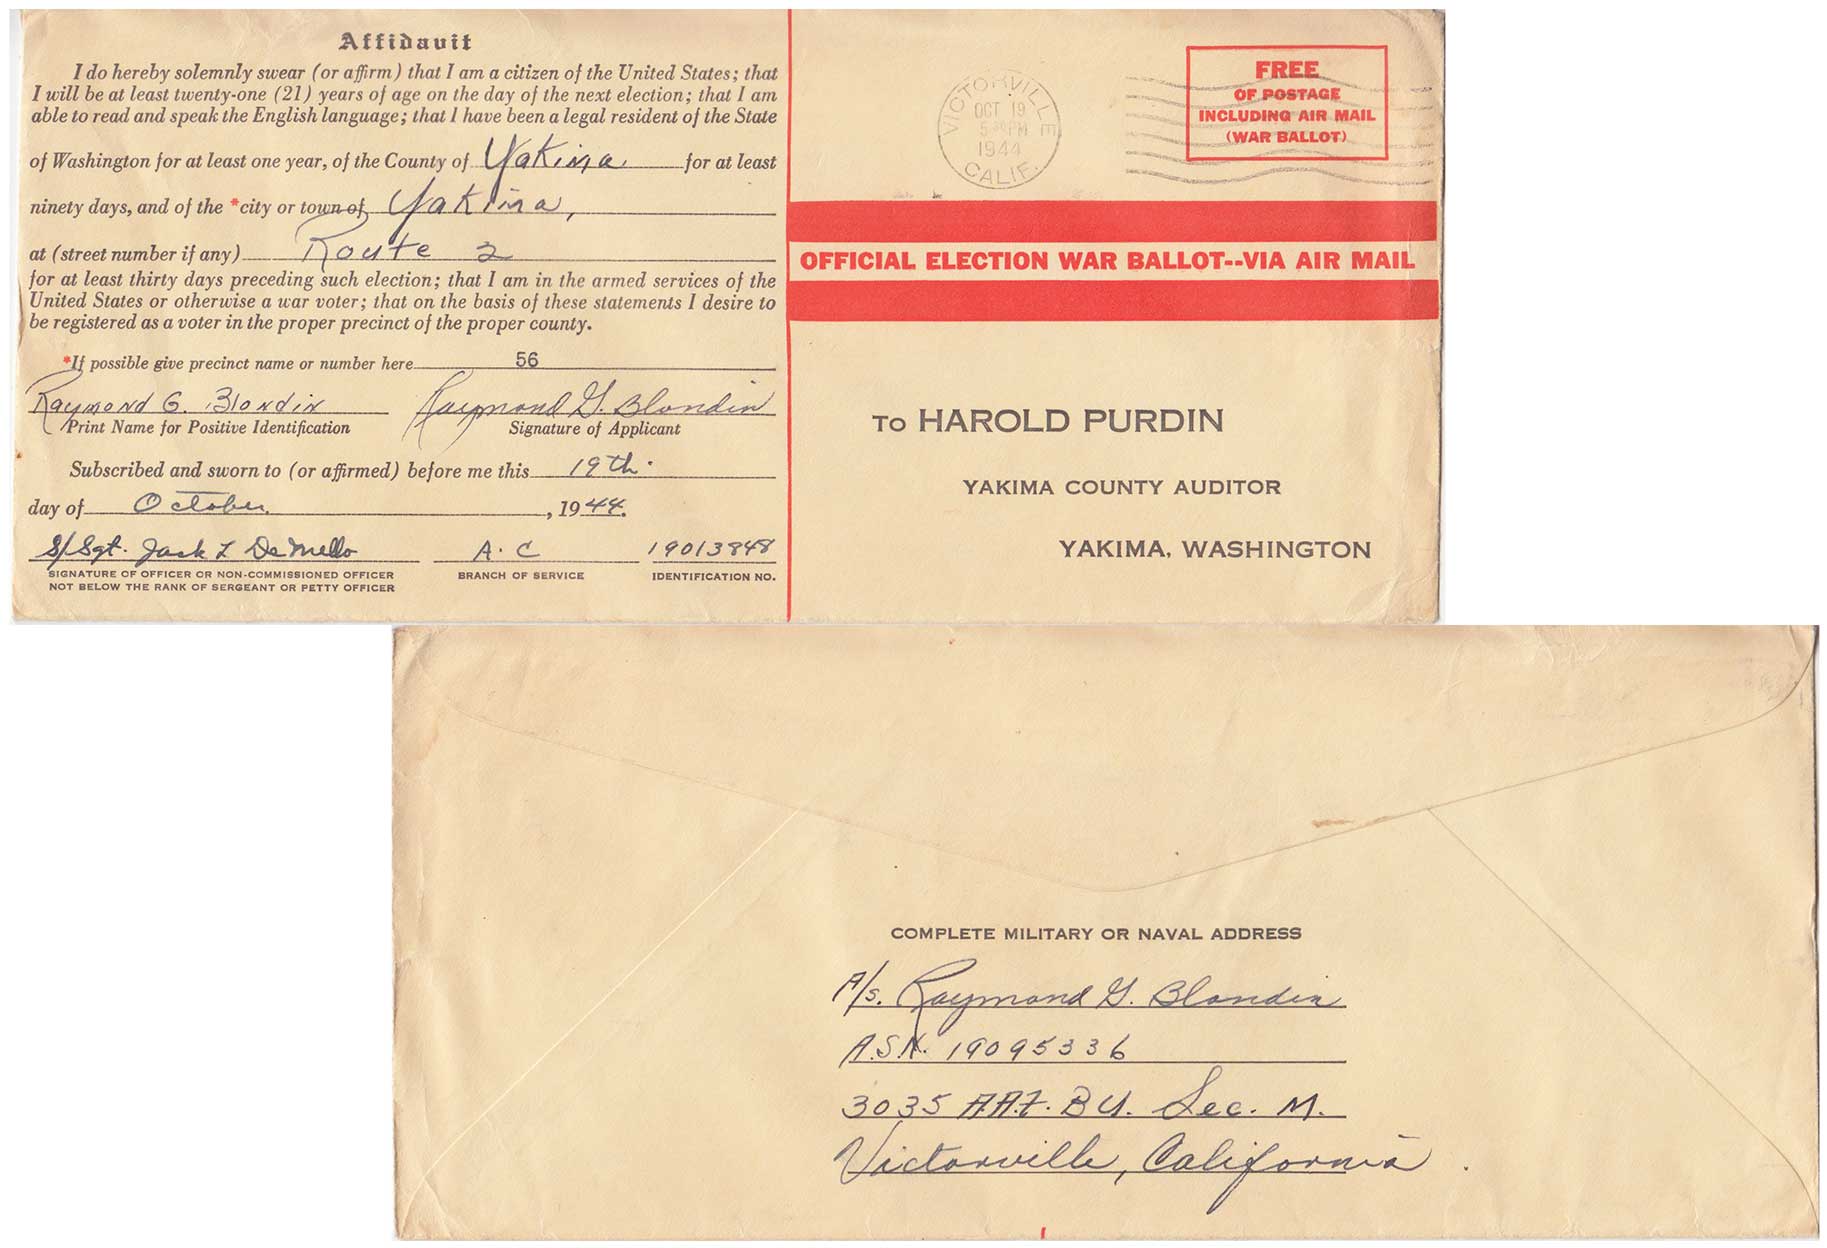 Affidavit
I do hereby solemnly swear (or affirm) that I am a citizen of the United States; that
I will be at least twenty-one (21) years of age on the day of the next election; that I am
able to read and speak the English language; that I have been a legal resident of the State
of Washington for at least one year, of the County of Yakima for at least
ninety days, and of the *city or town of Yakima,
at (street number if any) Route 2
for at least thirty days preceding such election; that I am in the armed services of the
United States or otherwise a war voter; that on the basis of these statements I desire to
be registered as a voter in the proper precinct of the proper county.
*If possible give precinct name or number here 56
Raymond G. Blondin Raymond G. Blondin
Print Name for Positive Identification Signature of Applicant
Subscribed and sworn to (or affirmed) before me this 19th.
day of October, 1944.
S/Sgt. Jack L DeMello A.C 19013848
SIGNATURE OF OFFICER OR NON-COMMISSIONED OFFICER BRANCH OF SERVICE IDENTIFICATION NO.
NOT BELOW THE RANK OF SERGEANT OR PETTY OFFICER
VICTORVILLE
OCT 19
PM
1944
CALIF.
FREE
OF POSTAGE
INCLUDING AIR MAIL
(WAR BALLOT)
OFFICIAL ELECTION WAR BALLOT--VIA AIR MAIL
To HAROLD PURDIN
YAKIMA COUNTY AUDITOR
YAKIMA, WASHINGTON
COMPLETE MILITARY OR NAVAL ADDRESS
A/S. Raymond G. Blondin
A.S.N. 19095336
3035 A.A.F. B.U. Sec. M.
Victorville, California.